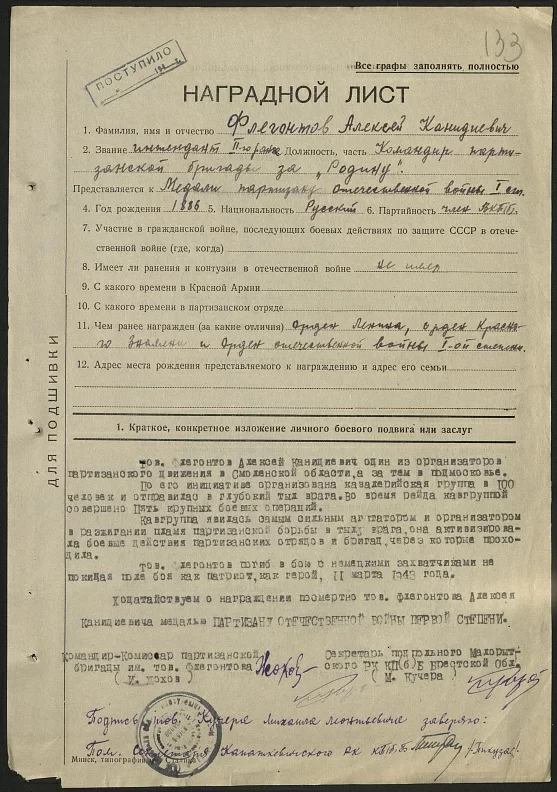 133
ПОСТУПИЛО
Все графы заполнять полностью
НАГРАДНОЙ ЛИСТ
1. Фамилия, имя и отчество Флегонтов Алексей Канидиевич
2. Звание интендант II-го ранга Должность, часть Командир парти-
занской бригады за „Родину".
Представляется к Медали партизану отечественной войны I ст.
4. Год рождения 1886 5. Национальность Русский 6. Партийность член ВКП(б)
7. Участие в гражданской войне, последующих боевых действиях по защите СССР в отече-
ственной войне (где, когда)
8. Имеет ли ранения и контузии в отечественной войне не имеет
9. С какого времени в Красной Армии
10. С какого времени в партизанском отряде
11. Чем ранее награжден (за какие отличия) Орден Ленина, орден Красно-
го Знамени и Орден отечественной войны I-ой степени.
12. Адрес места рождения представляемого к награждению и адрес его семьи
ДЛЯ ПОДШИВКИ
1. Краткое, конкретное изложение личного боевого подвига или заслуг
тов. Флегонтов Алексей Канидиевич один из организаторов
партизанского движения в Смоленской области,а за тем в подмосковье.
По его инициативе организована кавалерийская группа в 100
человек и отправилась в глубокий тыл врага.Во время рейда кавгруппой
совершено Пять крупных боевых операций.
Кавгруппа явилась самым сильным агитатором и организатором
в разжигании пламя партизанской борьбы в тылу врага,она активизирова-
ла боевые действия партизанских отрядов и бригад,через которые прохо-
дила.
тов. Флегонтов погиб в бою с немецкими захватчиками не
покидая поле боя как патриот,как герой, 11 марта 1943 года.
Ходатайствуем о награждении посмертно тов. Флегонтова Алексея
Канидиевича медалью ПАРТИЗАНУ ОТЕЧЕСТВЕННОЙ ВОЙНЫ ПЕРВОЙ СТЕПЕНИ.
Командир-Комиссар партизанской Секретарь подпольного Малорыт-
бригады им. тов. Флегонтова ского РК КП(б)Б Брестской Обл.
( И. Жохов ) ( М. Кучера )
Подпись тов. Кучера Михаила Леонтьевича заверяю:
Пом. Секретаря Капаткевичского рк КП(б)Б
Минск, типография им. Сталина